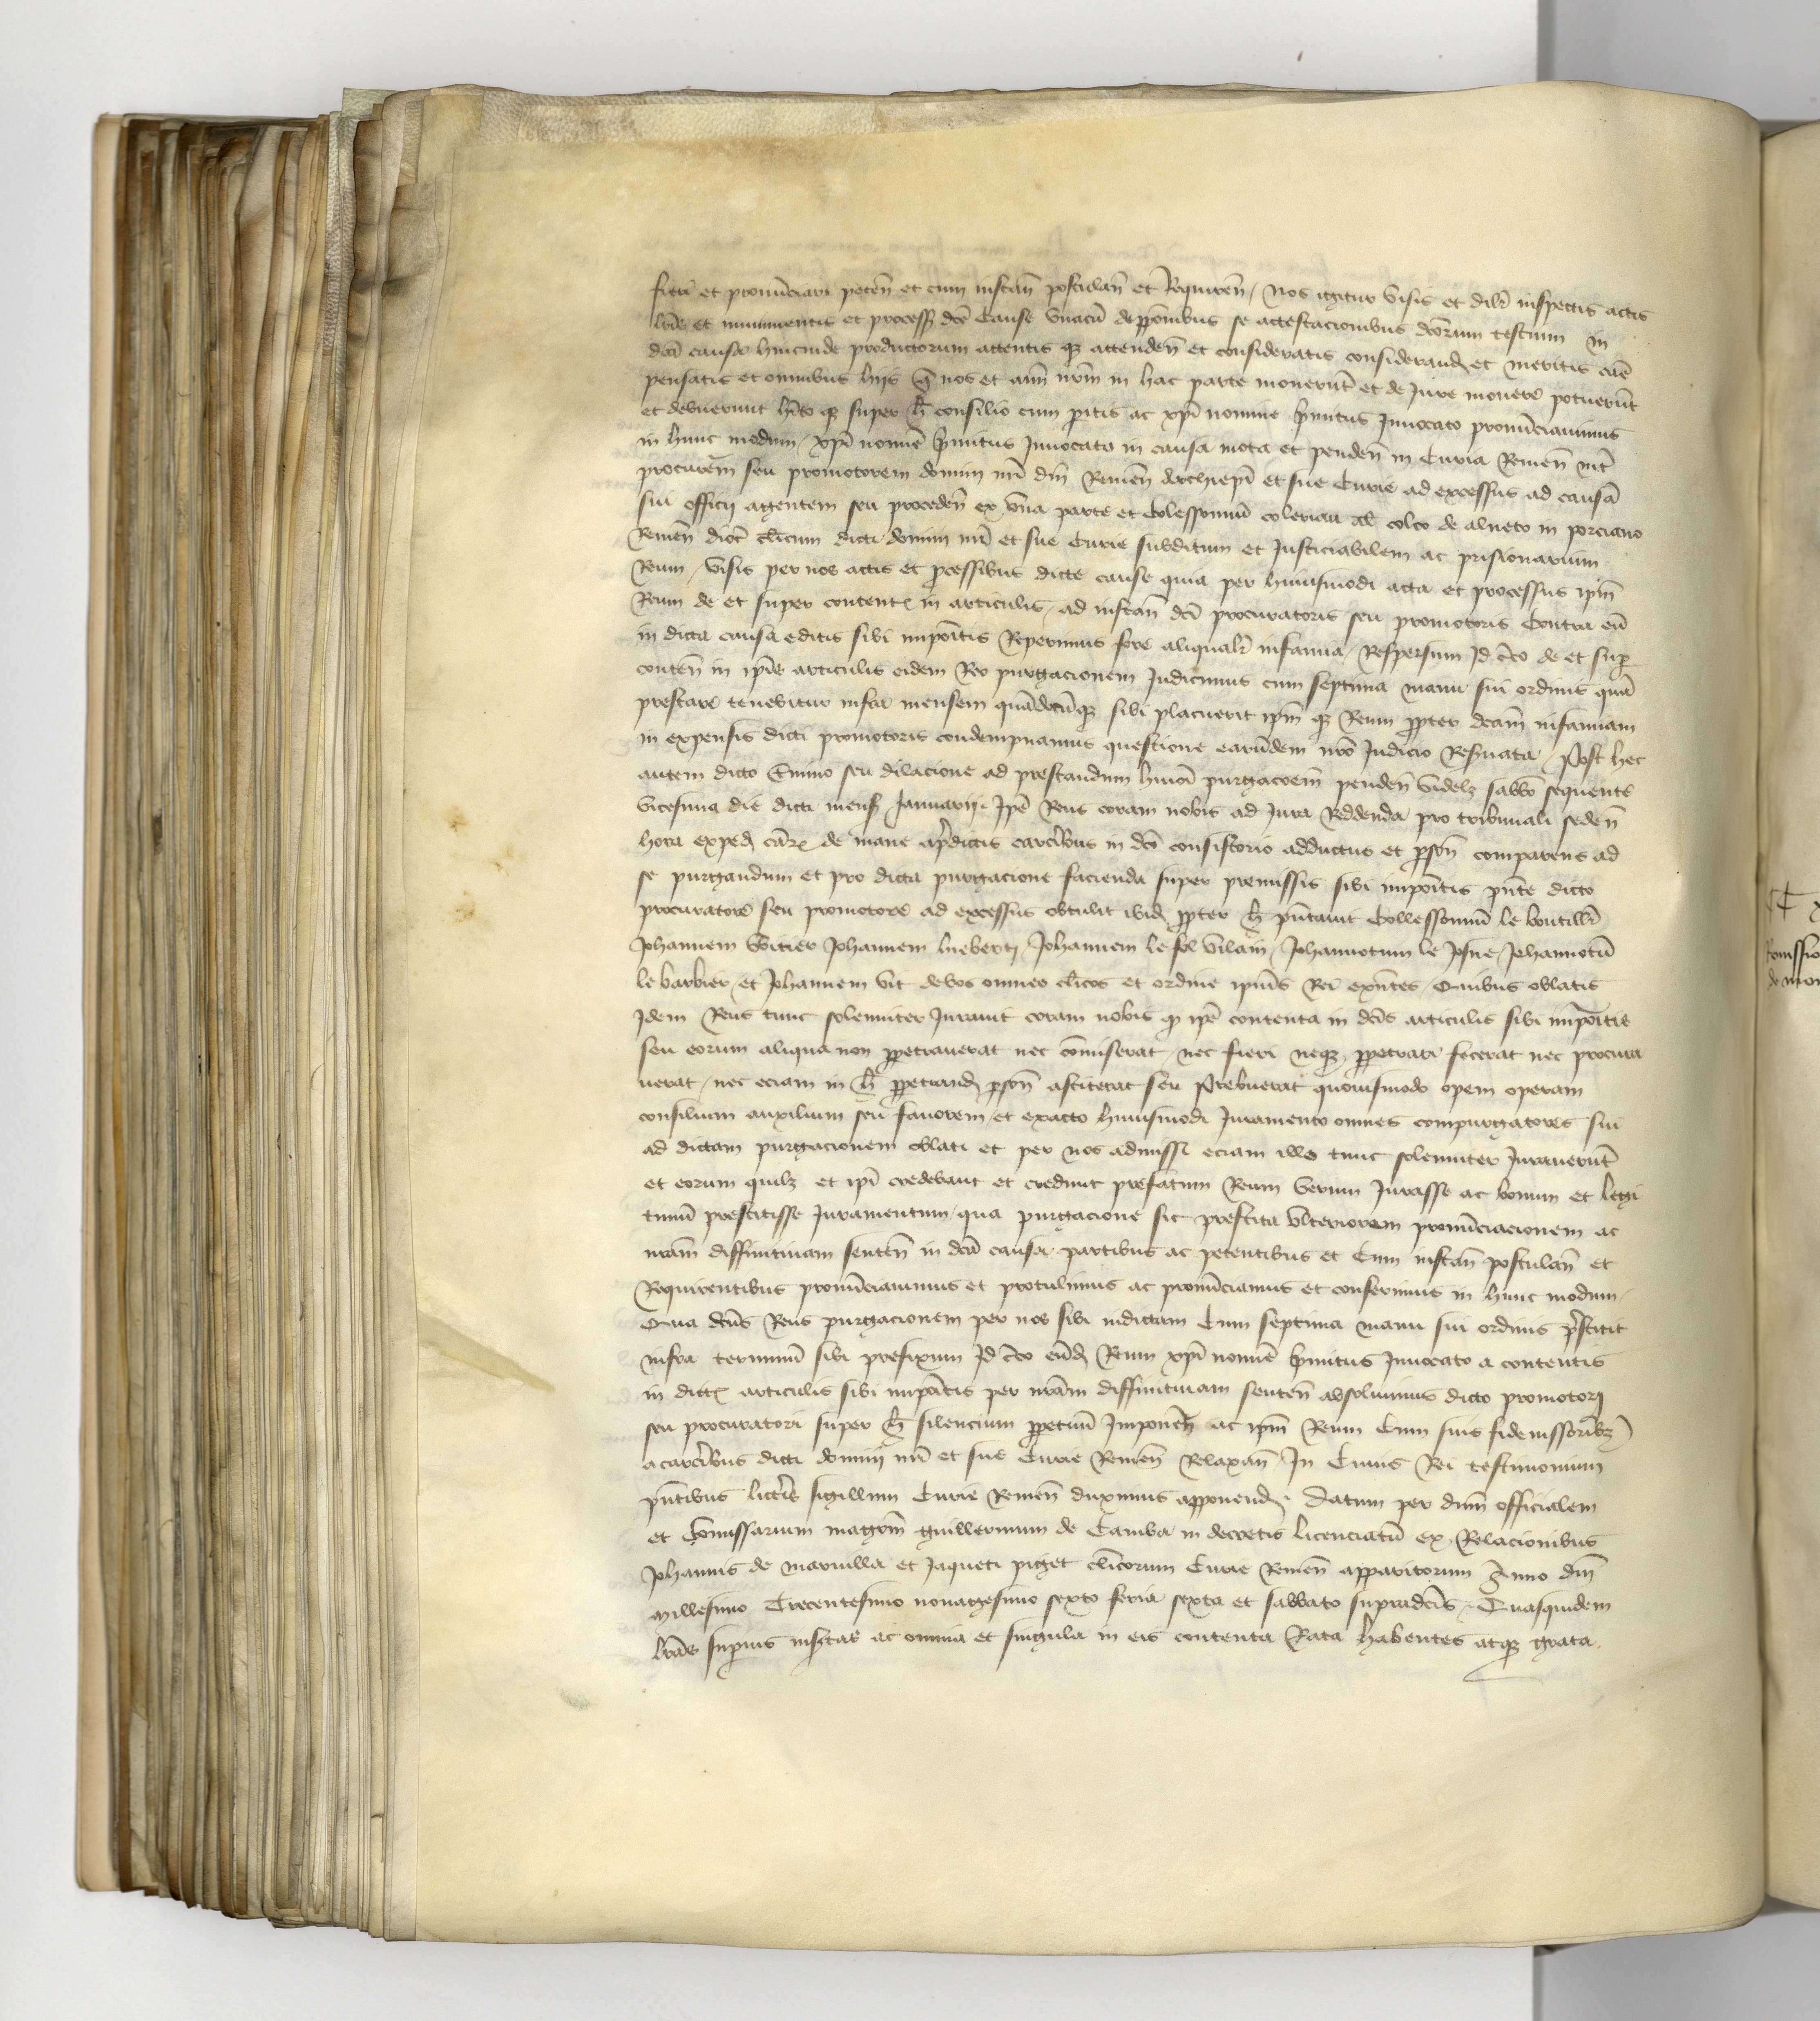 fieri et pronūciari peten̄ et cum instan̄ postulan̄ et Requiren̄ / nos igitur visis et dilr̄ inspectis actis
lrīs et munimentis et process dcē Cause vnacū depponibus se attestacionibus dcōrum testium in
dcā causa hincinde productorum attentis qȝ attenden̄ et consideratis considerand et meritis cāe
pensatis et omnibus hijs q̄ nos et aīm nrm̄ in hac parte monerūt et de Jure mouere potuerūt
et debuerunt hīto qȝ super h̄ consilio cum peritis ac xpī nomine primitus Jnuocato pronūciauimus
in hunc modum / xpī nomīe primitus Jnuocato in causa mota et penden̄ in Curia Remen̄ int̄
procurem̄ seu promotorem domini nrī dnī Remen̄ Archiepī et sue Curie ad excessus ad causā
sui officij agentem seu proceden̄ ex vna parte et Colessonnū colerian al colco de alneto in porciano
Remen̄ dioc̄ cl̄icum dicti domini nrī et sue Curie subditum et Justiciabilem ac prisionarium
Reum / visis per nos actis et processibus dicte cause quia per huiusmodi acta et processus ipm̄
Reum de et super content in articulis / ad instan̄ dcī procuratoris seu promotoris Contra eū
in dicta causa editis sibi impoītis Reperimus fore aliqualr̄ infamia / Respersum Jd c̄co de et sup
conten̄ in ipīs articulis eidem Reo purgacionem Judicimus cum septima manu sui ordinis quā
prestare tenebitur infra mensem quādocūqȝ sibi placuerit ipm̄ qȝ Reum ppter dcam̄ infamiam
in expensis dicti promotoris condempnamus questione earūdem nrō Judicio Reseruata / Post hec
autem dicto t̄mino seu dilacione ad prestandum hmōi purgacoem̄ penden̄ videlȝ sabbo sequente
vicesima die dicti mens Januarij Jpē Reus coram nobis ad Jura Reddenda pro tribunali seden̄
hora exped cār de mane apredictis carceribus in dcō consistorio adductus et pson̄ comparens ad
se purgandum et pro dicta purgacione facienda super premissis sibi impoītis pn̄te dicto
procuratore seu promotore ad excessus obtulit ibid ppter h̄ pn̄tauit Collessonnū le boutillr̄
Johannem Voitier Johannem huebert / Johannem le fol vilain / Johannotum le Josne / Johannotū
le barbier / et Johannem vit devos omnes cl̄icos et ordine ipīus Rei exn̄tes / Quibus oblatis
Jdem Reus tunc solenniter Jurauit coram nobis qȝ ipē contenta in dcīs articulis sibi impoītis
seu eorum aliqua non ppetrauerat nec cōmiserat / nec fieri neqȝ ppetrari fecerat nec procura
uerat / nec eciam in h̄ ppetrand pson̄ astiterat seu Prebuerat quouismodo opem operam
consilium auxilium seu fauorem / et exacto huiusmodi Juramento omnes compurgatores sui
ad dictam purgacionem oblati et per nos admissi eciam illo tunc solenniter Jurauerūt
et eorum quilȝ et ipī credebant et credunt prefatum Reum verum Jurasse ac bonum et legi
timū prestitisse Juramentum / qua purgacione sic prestita vlteriorem pronūciacionem ac
nrām diffinitiuam senten̄ in dcā causa partibus ac petentibus et Cum instan̄ postulan̄ et
Requirentibus pronūciauimus et protulimus ac pronūciamus et conferimus in hunc modum /
Quia dcūs Reus purgacionem per nos sibi indictam Cum septima manu sui ordinis prestitit
infra terminū sibi prefixum Jd c̄co eūd Reum xpī nomīe primitus Jnuocato a contentis
in dict articulis sibi impoītis per nrām diffinitiuam senten̄ absoluimus dicto promotori
seu procuratori super h̄ silencium ppetuū Jmponen̄ ac ipm̄ Reum Cum suis fideiussoribȝ
acarceribus dicti dominij nrī et sue Curie Remen̄ Relaxan̄ / Jn Cuius Rei testimonium
pn̄tibus litteris sigillum Curie Remen̄ duximus apponend. Datum per dnm̄ officialem
et Comissarium magrm̄ guillermum de Camba in decretis licenciatū ex Relacionibus
Johannis de maruilla et Jaqueti piget cl̄icorum Curie Remen̄ apparitorum Anno dnī
Millesimo Trecentesimo nonagesimo sexto feria sexta et sabbato supradcīs / Quasquidem
lrās supius insertas ac omnia et singula in eis contenta Rata habentes atqȝ grata